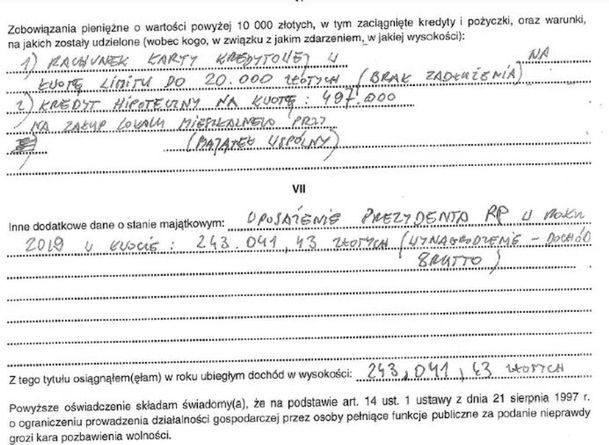 Zobowiązania pieniężne o wartości powyżej 10 000 złotych, w tym zaciągnięte kredyty i pożyczki, oraz warunki,
na jakich zostały udzielone (wobec kogo, w związku z jakim zdarzeniem, w jakiej wysokości):
1) RACHUNEK KARTY KREDYTOWEJ W NA
KWOTĘ LIMITU DO 20.000 ZŁOTYCH (BRAK ZADŁUŻENIA)
2) KREDYT HIPOTECZNY NA KWOTĘ: 497.000
NA ZAKUP LOKALU MIESZKALNEGO PRZY
(MAJĄTEK WSPÓLNY)
VII
Inne dodatkowe dane o stanie majątkowym: UPOSAŻENIE PREZYDENTA RP W ROKU
2019 W KWOCIE: 243.041,43 ZŁOTYCH (WYNAGRODZENIE - DOCHÓD
BRUTTO)
Z tego tytułu osiągnąłem(ęłam) w roku ubiegłym dochód w wysokości: 243,041,43 ZŁOTYCH
Powyższe oświadczenie składam świadomy(a), że na podstawie art. 14 ust. 1 ustawy z dnia 21 sierpnia 1997 r.
o ograniczeniu prowadzenia działalności gospodarczej przez osoby pełniące funkcje publiczne za podanie nieprawdy
grozi kara pozbawienia wolności.